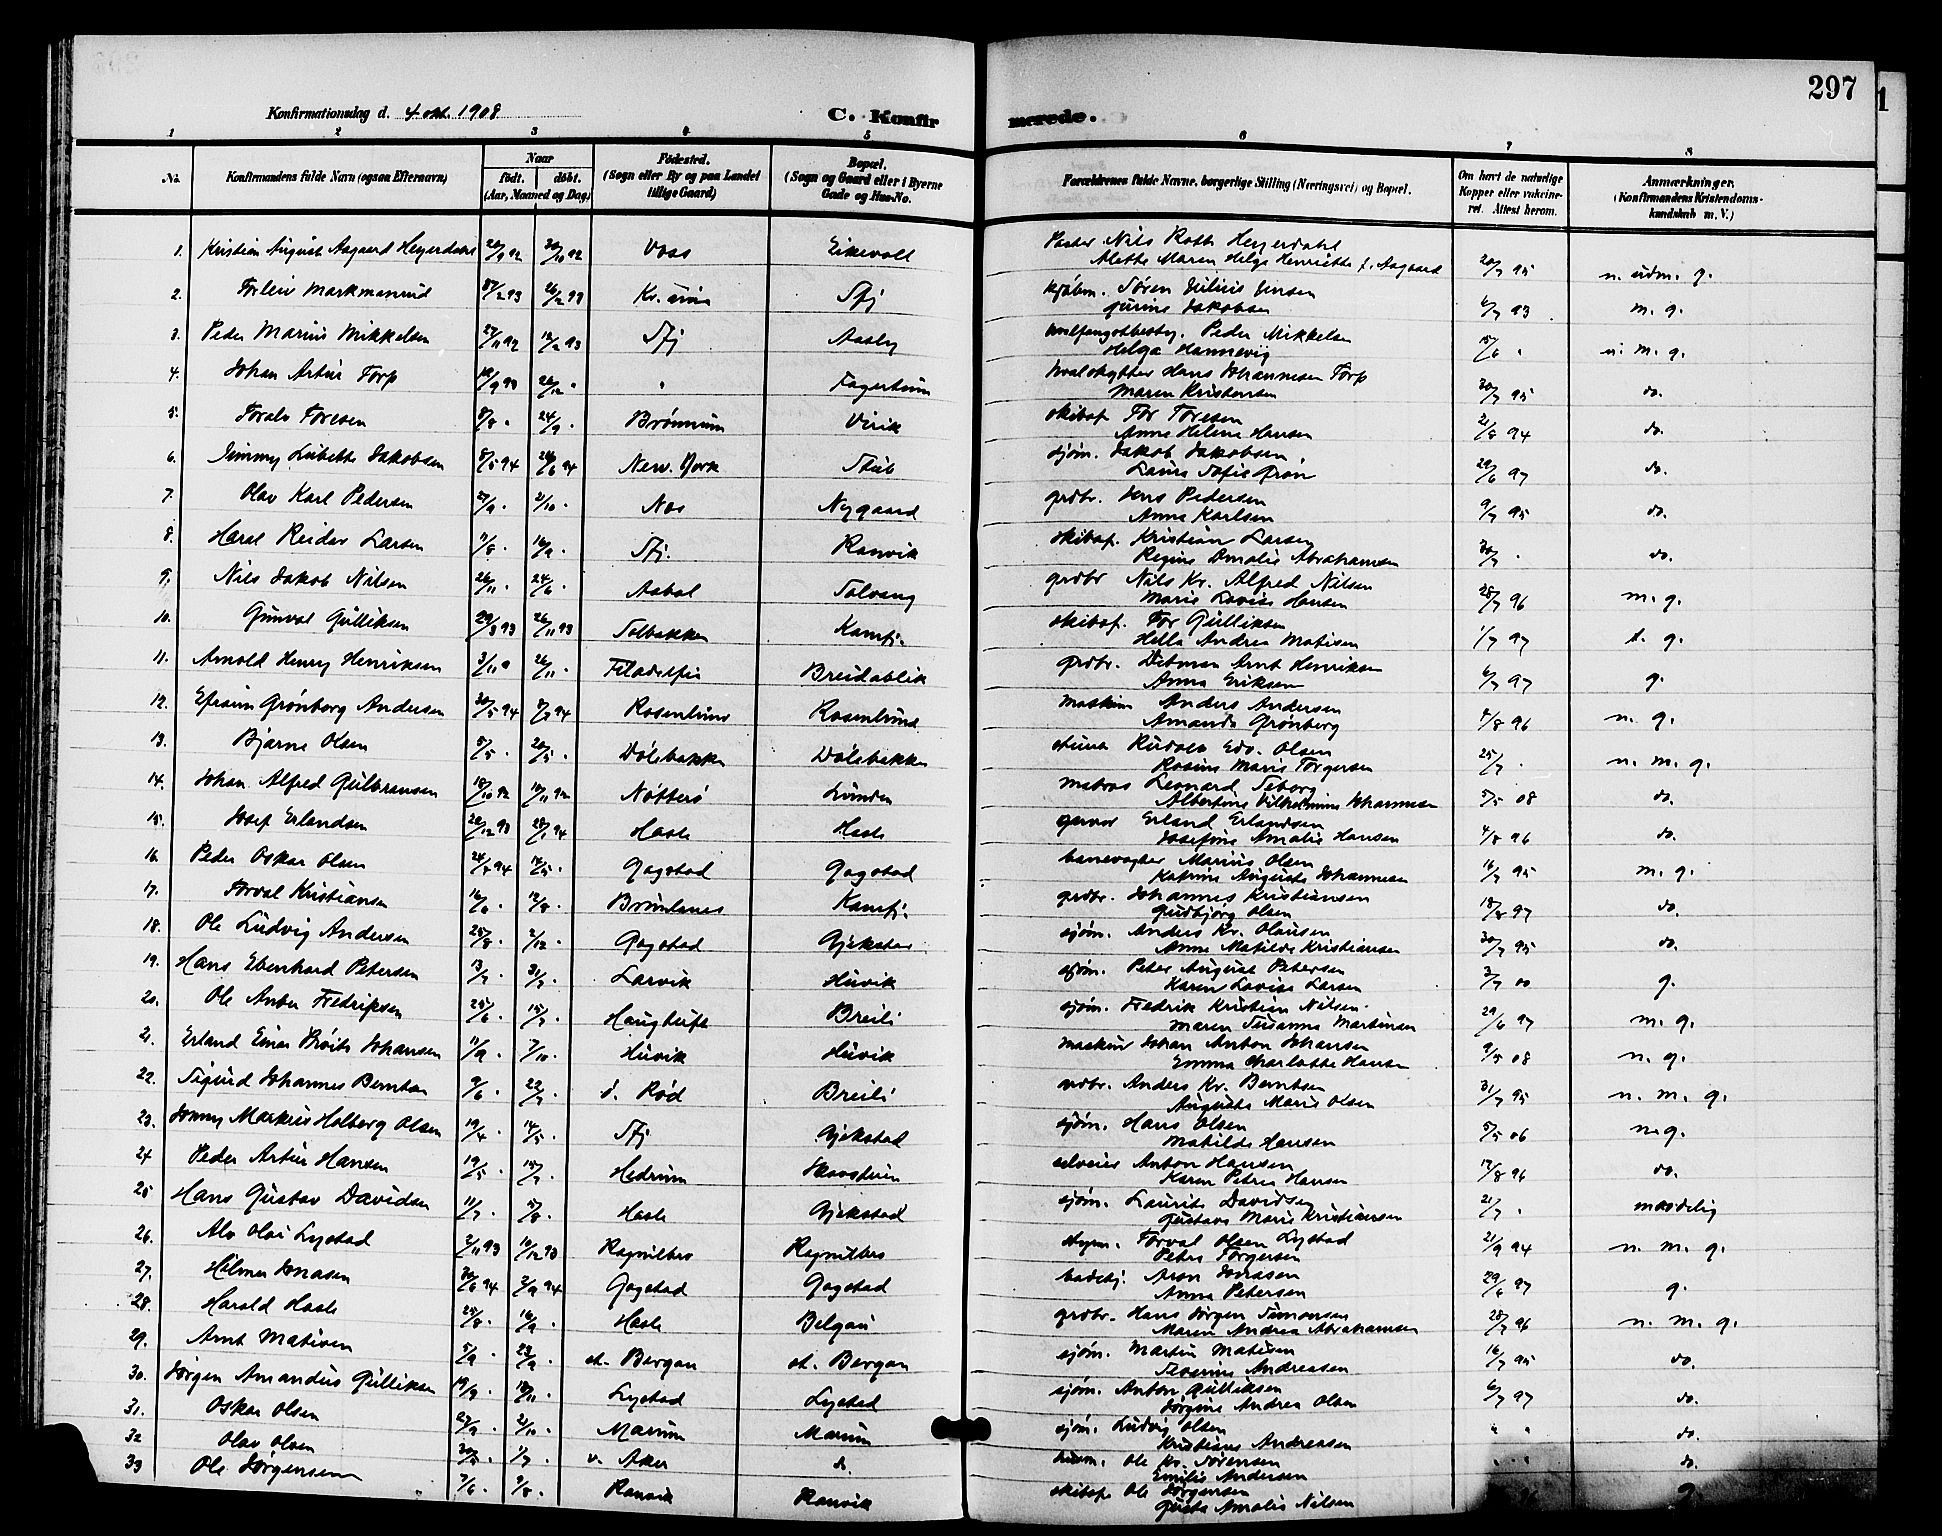 297
Konfirmationsdag d. 4 okt. 1908
C. Konfirmerede.
1 2 3 4 5 6 7 8
No. Konfirmandens fulde Navn (ogsaa Efternavn) Naar født. døbt. (Aar, Maaned og Dag) Fødested. (Sogn eller By og paa Landet tillige Gaard) Bopæl. (Sogn og Gaard eller i Byerne Gade og Hus-No. Forældrenes fulde Navne, borgerlige Stilling (Næringsvei) og Bopæl. Om havt de naturlige Kopper eller vakcineret. Attest herom. Anmærkninger. (Konfirmandens Kristendomskundskab m. V.)
1. Kristian August Aagaard Heyerdahl 20/9 92 30/10 92 Voss Eikevoll Pastor Nils Roth Heyerdahl
Alette Maren Helga Henriette f. Aagaard 20/7 95 n. udm. g.
2. Torleiv Markmanrud 26/2 93 Sfj kjøbm. Søren Julius Jensen
Jakobsen 6/7 93 m. g.
3. Peder Marius Mikkelsen 27/11 92 12/2 93 Sfj Aasly hvalfangstbesty. Peder Mikkelsen
Helga Hannevig 15/6 " n. m. g.
4. Johan Artur Torp 26/12 " " Fagertun hvalskytter Hans Johannesen Torp
Maren Kristensen 30/7 95 do.
5. Toralv Toresen 8/8 " 24/9 " Brønnum Virik skibsf. Tor Toresen
Anne Helene Hansen 21/8 94 do.
6. Jimmy Lubette Jakobsen 8/5 94 24/6 94 New. York Stub sjøm. Jakob Jakobsen
Laura Sofie 29/6 97 do.
7. Olav Karl Pedersen 27/9 " 21/10 " Nes Nygaard grdbr. Jens Pedersen
Anna Karlsen 9/7 95 do.
8. Haral Reidar Larsen 11/8 " 16/9 " Sfj. Ranvik skibsf. Kristian Larsen
Regine Amalie Abrahamsen 30/7 " do.
9. Nils Jakob Nilsen 26/11 " 24/6 " Aabol Solvang grdbr Nils Kr. Alfred Nilsen
Marie Lovise Hansen 28/7 96 m. g.
10. Gunval Gulliksen 29/8 93 26/11 93 Solbakken Kamfj. skibsf. Tor Gulliksen
Hella Andrea Matisen 1/7 97 t. g.
11. Arnold Henry Henriksen 3/11 " 26/11 " Filadelfia Breidablik grdbr. Ditman Arnt Henriksen
Anna Eriksen 6/7 97 g.
12. Efraim Grønberg Andersen 30/5 94 8/7 94 Rosenlund Rosenlund maskin Anders Andersen
Amanda Grønberg 4/8 96 n. g.
13. Bjarne Olsen 5/5 " 20/5 " Dølebakken Dølebakken Rudolv Edv. Olsen
Rosine Marie Torgersen 25/7 " n. m. g.
14. Johan Alfred Gulbransen 18/10 92 Nøtterø Lunden matros Leonard Seborg
Albertine Vilhelmine Johannesen 5/5 08 do.
15. Josef Erlandsen 20/12 93 28/1 94 Hasle Hasle Erland Erlandsen
Josefine Amalie Hansen 4/8 96 do.
16. Peder Oskar Olsen 24/4 94 14/5 " Gogstad Gogstad banevogter Marius Olsen
Katrine Auguste Johannesen 16/7 95 m. g.
17. Torval Kristiansen 16/6 " 12/8 " Kamfj. grdbr. Johannes Kristiansen
Gudbjørg Olsen 18/8 97 do.
18. Ole Ludvig Andersen 25/8 " 2/12 " Gogstad Gjekstad sjøm. Anders Kr. Olausen
Anne Matilde Kristiansen 30/7 95 do.
19. Hans Ebenhard Petersen 13/7 " 31/7 " Larvik Huvik sjøm. Peter August Petersen
Karen Lovise Larsen 3/7 00 g.
20. Ole Anton Fredriksen 25/6 " 15/7 " Haugtuft Breili sjøm. Fredrik Kristian Nilsen
Maren Susanna Martinsen 29/6 97 m. g.
21. Erland Einar Johansen 11/9 " 7/10 " Huvik Huvik maskin Johan Anton Johansen
Emma Charlotte Hansen 9/5 08 n. g.
22. Sigurd Johannes Berntsen 9/6 " 22/7 " Rød Breili grdbr. Anders Kr. Berntsen
Auguste Marie Olsen 31/7 95 n. m. g.
23. Jonny Markus Holberg Olsen 19/4 " 14/5 " Sfj Gjekstad sjøm. Hans Olsen
Matilde Hansen 5/5 06 n. g.
24 Peder Artur Hansen 19/5 " 15/7 " Hedrum Skovstuen selveier Anton Hansen
Karen Petrea Hansen 17/8 96 do.
25 Hans Gustav Davidsen 11/7 " 5/8 " Hasle Gjekstad sjøm. Laurits Davidsen
Gustava Marie Kristiansen 21/7 " maadelig
26. Alv Olai Lystad 2/11 93 10/12 93 styrm. Torval Olsen Lystad
Petra Torgersen 21/9 94 n. m. g.
27. Hilmar Jonasen 30/6 94 2/9 94 Gogstad Gogstad Aron Jonasen
Anna Petersen 29/6 97 g.
28. Harald Hasle 25/8 " 16/9 " Hasle Belgau grdbr. Hans Jørgen Simonsen
Maren Andrea Abrahamsen 28/7 96 n. m. g.
29. Arnt Matisen 5/9 " 23/9 " st. Bergan st. Bergan sjøm. Martin Matisen
Severine Andreasen 16/7 95 do.
30. Jørgen Amandus Gulliksen 19/9 " 18/11 " Lystad Lystad sjøm. Anton Gulliksen
Jørgine Andrea Olsen 6/7 97 do.
31. Oskar Olsen 27/9 " 21/10 " Marum Marum sjøm. Ludvig Olsen
Kristiane Andreasen " " do.
32 Olav Olsen 30/5 " 1/7 " v. Aker do. husm. Ole Kr. Sørensen
Emilie Andersen " " do.
33 Ole Jørgensen 7/6 " 9/8 " Ranvik Ranvik skibsf. Ole Jørgensen
Gusta Amalie Nilsen 96 g.